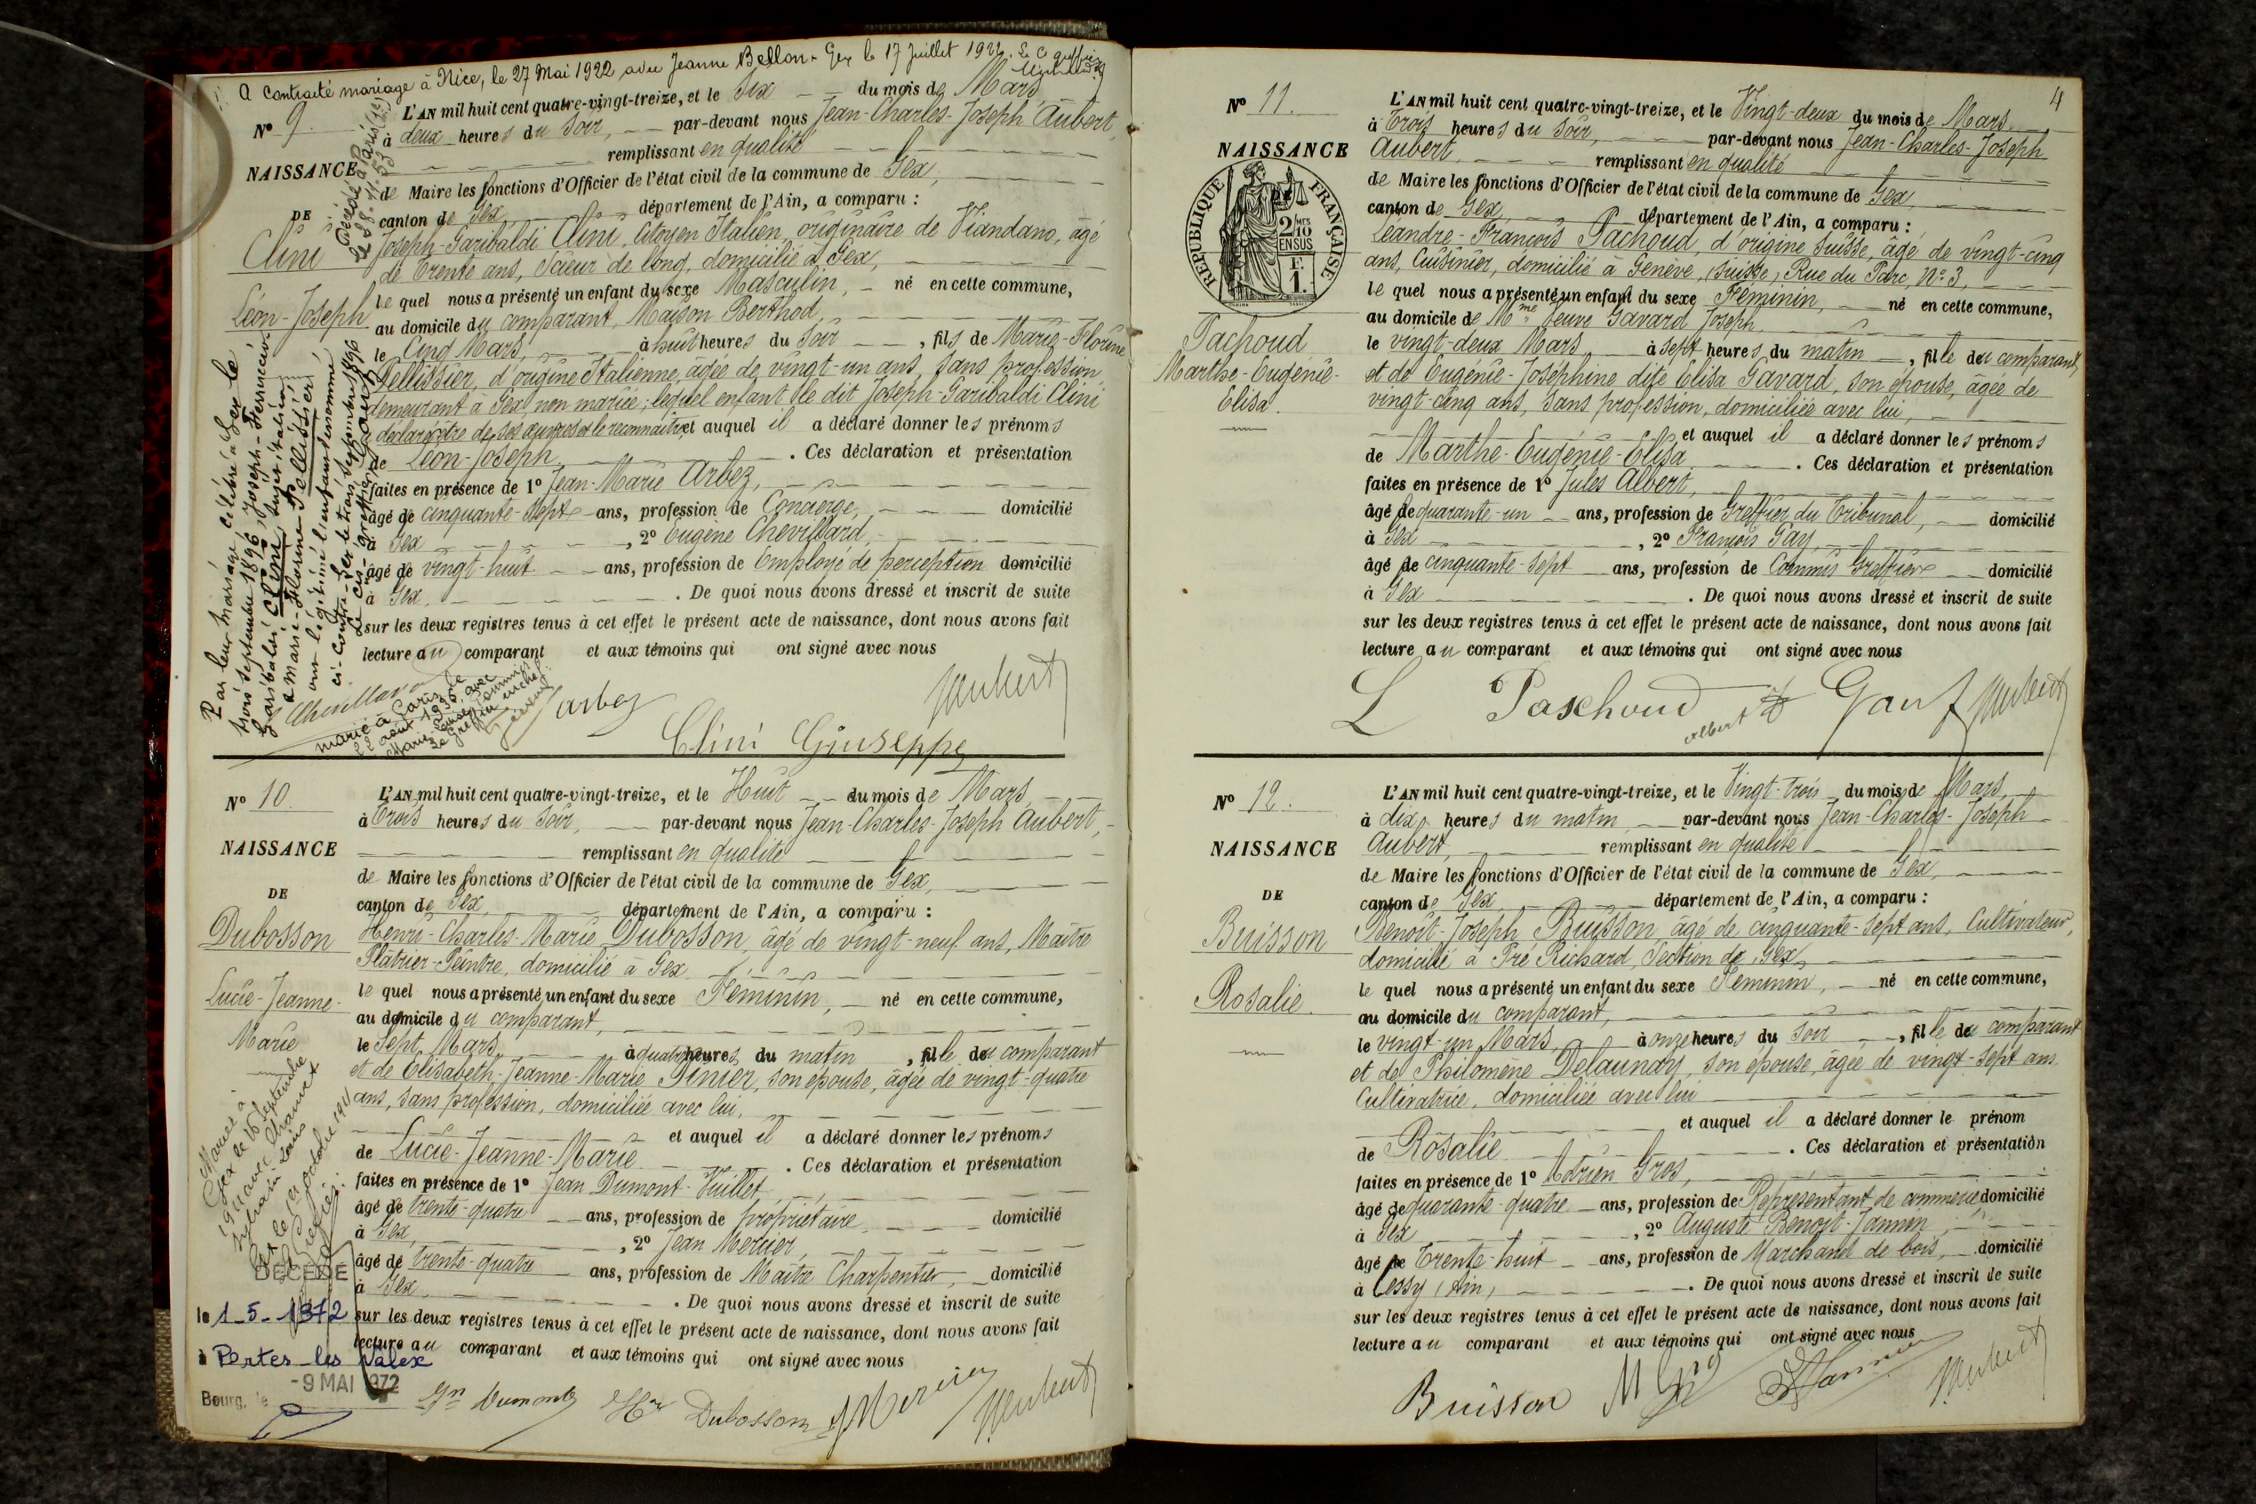 A contracté mariage à Nice, le 27 Mai 1922 avec Jeanne Bellon. Gex le 17 Juillet 1922. Le C. greffier
Nº 9.
L'AN mil huit cent quatre-vingt-treize, et le Six du mois de Mars
à deux heures du Soir, par-devant nous Jean-Charles-Joseph Aubert,
NAISSANCE
remplissant en qualité
de Maire les fonctions d'Officier de l'état civil de la commune de Gex,
DE
canton de Gex, département de l'Ain, a comparu :
Décédé à Paris
Clini
Joseph-Garibaldi Clini, Citoyen Italien, originaire de Viandano, âgé
de Trente ans, Scieur de long, domicilié à Gex,
Léon-Joseph
le quel nous a présenté un enfant du sexe Masculin, né en cette commune,
au domicile du comparant, Maison Berthod,
le Cinq Mars, à huit heures du Soir, fils de Marie-Florine
Pellissier, d'origine Italienne, âgée de vingt-un ans, sans profession
demeurant à Gex, non mariée; lequel enfant le dit Joseph-Garibaldi Clini
a déclaré être de ses œuvres et le reconnaître, et auquel il a déclaré donner les prénoms
de Léon-Joseph. Ces déclaration et présentation
faites en présence de 1º Jean-Marie Arbez,
âgé de cinquante-sept ans, profession de Concierge, domicilié
à Gex, 2º Eugène Chevillard,
âgé de vingt-huit ans, profession de Employé de perception domicilié
à Gex. De quoi nous avons dressé et inscrit de suite
sur les deux registres tenus à cet effet le présent acte de naissance, dont nous avons fait
lecture au comparant et aux témoins qui ont signé avec nous
Par leur mariage, célébré à Gex le
trois septembre 1896, Joseph-
Garibaldi Clini, sujet italien,
& Marie-Florine Pellissier
ont légitimé l'enfant dénommé
ci-contre. Gex le trois septembre 1896
Le Cis-greffier
Chevillard
Marié à Paris le
22 août 1935 avec
Marie Louise
Le Greffier en chef
Arbez
Aubert
Clini Giuseppe
Nº 10.
L'AN mil huit cent quatre-vingt-treize, et le Huit du mois de Mars,
à Trois heures du Soir, par-devant nous Jean-Charles-Joseph Aubert,
NAISSANCE
remplissant en qualité
de Maire les fonctions d'Officier de l'état civil de la commune de Gex,
DE
canton de Gex, département de l'Ain, a comparu :
Dubosson
Henri-Charles-Marie Dubosson, âgé de vingt-neuf ans, Maître
Plâtrier-Peintre, domicilié à Gex
Lucie-Jeanne-
Marie
le quel nous a présenté un enfant du sexe Féminin, né en cette commune,
au domicile du comparant,
le Sept Mars, à quatre heures du matin, fille du comparant
et de Elisabeth-Jeanne-Marie Pinier, son épouse, âgée de vingt-quatre
ans, sans profession, domiciliée avec lui,
et auquel il a déclaré donner les prénoms
de Lucie-Jeanne-Marie. Ces déclaration et présentation
faites en présence de 1º Jean Dumont-Vuillet
âgé de trente-quatre ans, profession de propriétaire, domicilié
à Gex, 2º Jean Mercier,
âgé de trente-quatre ans, profession de Maître Charpentier, domicilié
à Gex. De quoi nous avons dressé et inscrit de suite
sur les deux registres tenus à cet effet le présent acte de naissance, dont nous avons fait
lecture au comparant et aux témoins qui ont signé avec nous
Mariée à
Gex le 16 septembre
avec Chauvet
Sylvain Louis
Gex le octobre
DÉCÉDÉ
le 1-5-1972
à Pertes-les Valex
-9 MAI 1972
Bourg, le
Jn Dumont Hri Dubosson J Mercier Aubert
4
Nº 11.
L'AN mil huit cent quatre-vingt-treize, et le Vingt-deux du mois de Mars
à Trois heures du Soir, par-devant nous Jean-Charles-Joseph
NAISSANCE
Aubert, remplissant en qualité
de Maire les fonctions d'Officier de l'état civil de la commune de Gex
canton de Gex, département de l'Ain, a comparu :
RÉPUBLIQUE FRANÇAISE
2/10
EN SUS
F.
1.
Pachoud
Marthe-Eugénie-
Elisa.
Léandre-François Pachoud, d'origine Suisse, âgé de vingt-cinq
ans, Cuisinier, domicilié à Genève, (Suisse), Rue du Parc, Nº 3,
le quel nous a présenté un enfant du sexe Féminin, né en cette commune,
au domicile de Mme Veuve Gavard Joseph
le vingt-deux Mars à sept heures du matin, fille du comparant
et de Eugénie-Joséphine dite Elisa Gavard, son épouse, âgée de
vingt-cinq ans, sans profession, domiciliée avec lui,
et auquel il a déclaré donner les prénoms
de Marthe-Eugénie-Elisa. Ces déclaration et présentation
faites en présence de 1º Jules Albert,
âgé de quarante-un ans, profession de Greffier du Tribunal, domicilié
à Gex, 2º François Gay,
âgé de cinquante-sept ans, profession de Commis Greffier domicilié
à Gex. De quoi nous avons dressé et inscrit de suite
sur les deux registres tenus à cet effet le présent acte de naissance, dont nous avons fait
lecture au comparant et aux témoins qui ont signé avec nous
L Paschoud Albert Gay Aubert
Nº 12.
L'AN mil huit cent quatre-vingt-treize, et le Vingt-trois du mois de Mars,
à dix heures du matin par-devant nous Jean-Charles-Joseph
NAISSANCE
Aubert, remplissant en qualité
de Maire les fonctions d'Officier de l'état civil de la commune de Gex,
DE
canton de Gex, département de l'Ain, a comparu :
Buisson
Rosalie.
Benoît-Joseph Buisson âgé de cinquante-sept ans, Cultivateur,
domicilié à Pré Richard, Section de Gex,
le quel nous a présenté un enfant du sexe Féminin, né en cette commune,
au domicile du comparant,
le vingt-un Mars, à onze heures du soir, fille du comparant
et de Philomène Delaunay, son épouse, âgée de vingt-sept ans
Cultivatrice, domiciliée avec lui
et auquel il a déclaré donner le prénom
de Rosalie. Ces déclaration et présentation
faites en présence de 1º Adrien Gros,
âgé de quarante-quatre ans, profession de Représentant de commerce, domicilié
à Gex, 2º Auguste Benoit-Jannin,
âgé de Trente-huit ans, profession de Marchand de bois, domicilié
à Cessy (Ain). De quoi nous avons dressé et inscrit de suite
sur les deux registres tenus à cet effet le présent acte de naissance, dont nous avons fait
lecture au comparant et aux témoins qui ont signé avec nous
Buisson Gros Aubert